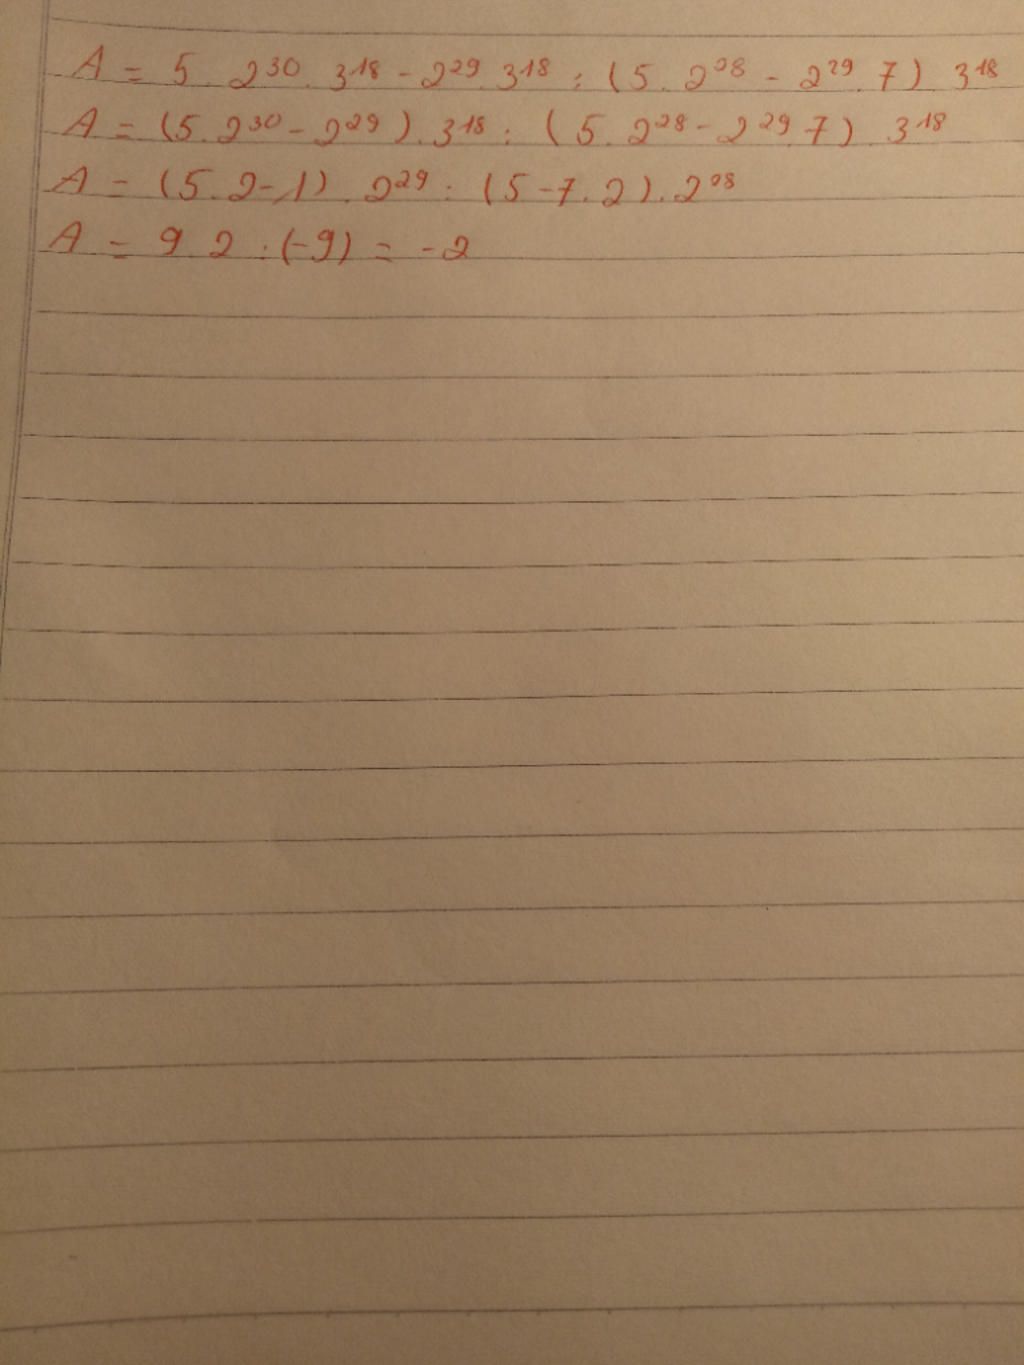 A = 5 . 2³⁰ . 3¹⁸ - 2²⁹ . 3¹⁸ : (5 . 2²⁸ - 2²⁹ . 7) 3¹⁸
A = (5 . 2³⁰ - 2²⁹) . 3¹⁸ : (5 . 2²⁸ - 2²⁹ . 7) . 3¹⁸
A = (5 . 2 - 1) . 2²⁹ : (5 - 7 . 2) . 2²⁸
A = 9 . 2 : (-9) = -2